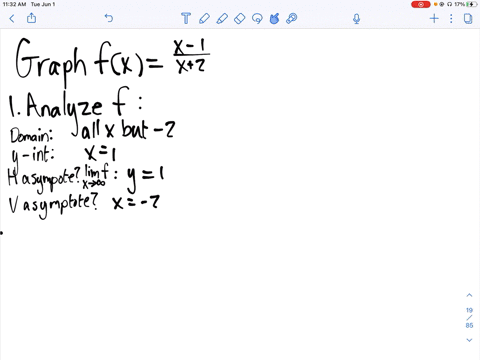 11:32 AM Tue Jun 1
17%
Graph f(x) = \frac{x-1}{x+2}
1. Analyze f :
Domain: all x but -2
y-int: x = 1
H asympote? \lim_{x→∞} f : y = 1
V asymptote? x = -2
19
/
85